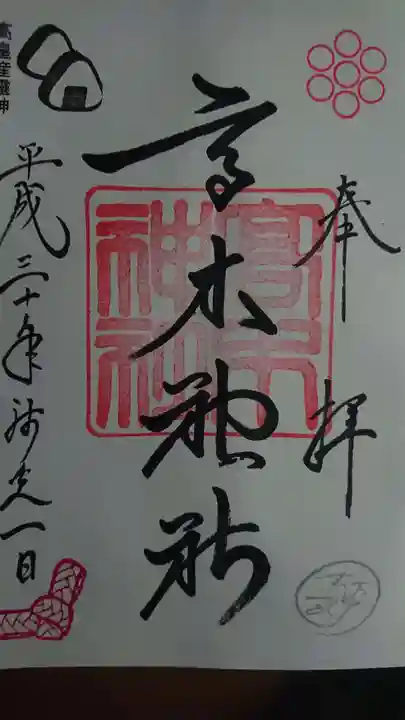 奉拝
高木神社
高木神社
平成三十年弥生一日
高皇産靈神